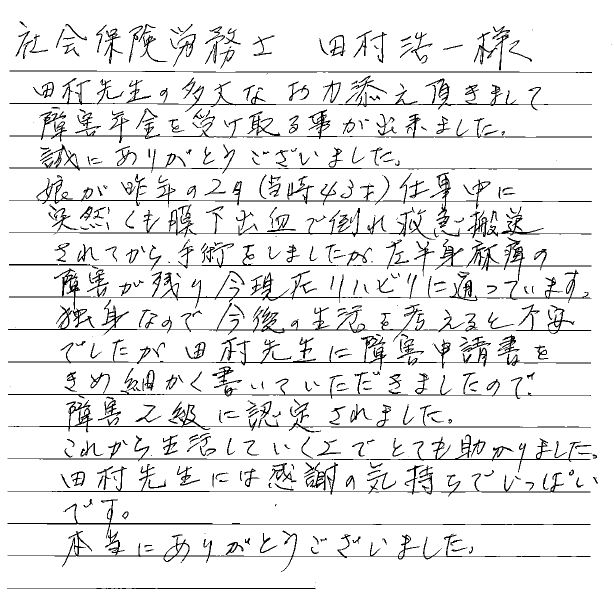 社会保険労務士 田村浩一様へ
田村先生の多大なお力添え頂きまして
障害年金を受け取る事が出来ました。
誠にありがとうございました。
娘が昨年の2月(当時43才)仕事中に
突然くも膜下出血で倒れ救急搬送
されてから手術をしましたが左半身麻痺の
障害が残り今現在リハビリに通っています。
独身なので今後の生活を考えると不安
でしたが田村先生に障害申請書を
きめ細かく書いていただきましたので、
障害2級に認定されました。
これから生活していく上でとても助かりました。
田村先生には感謝の気持ちでいっぱい
です。
本当にありがとうございました。